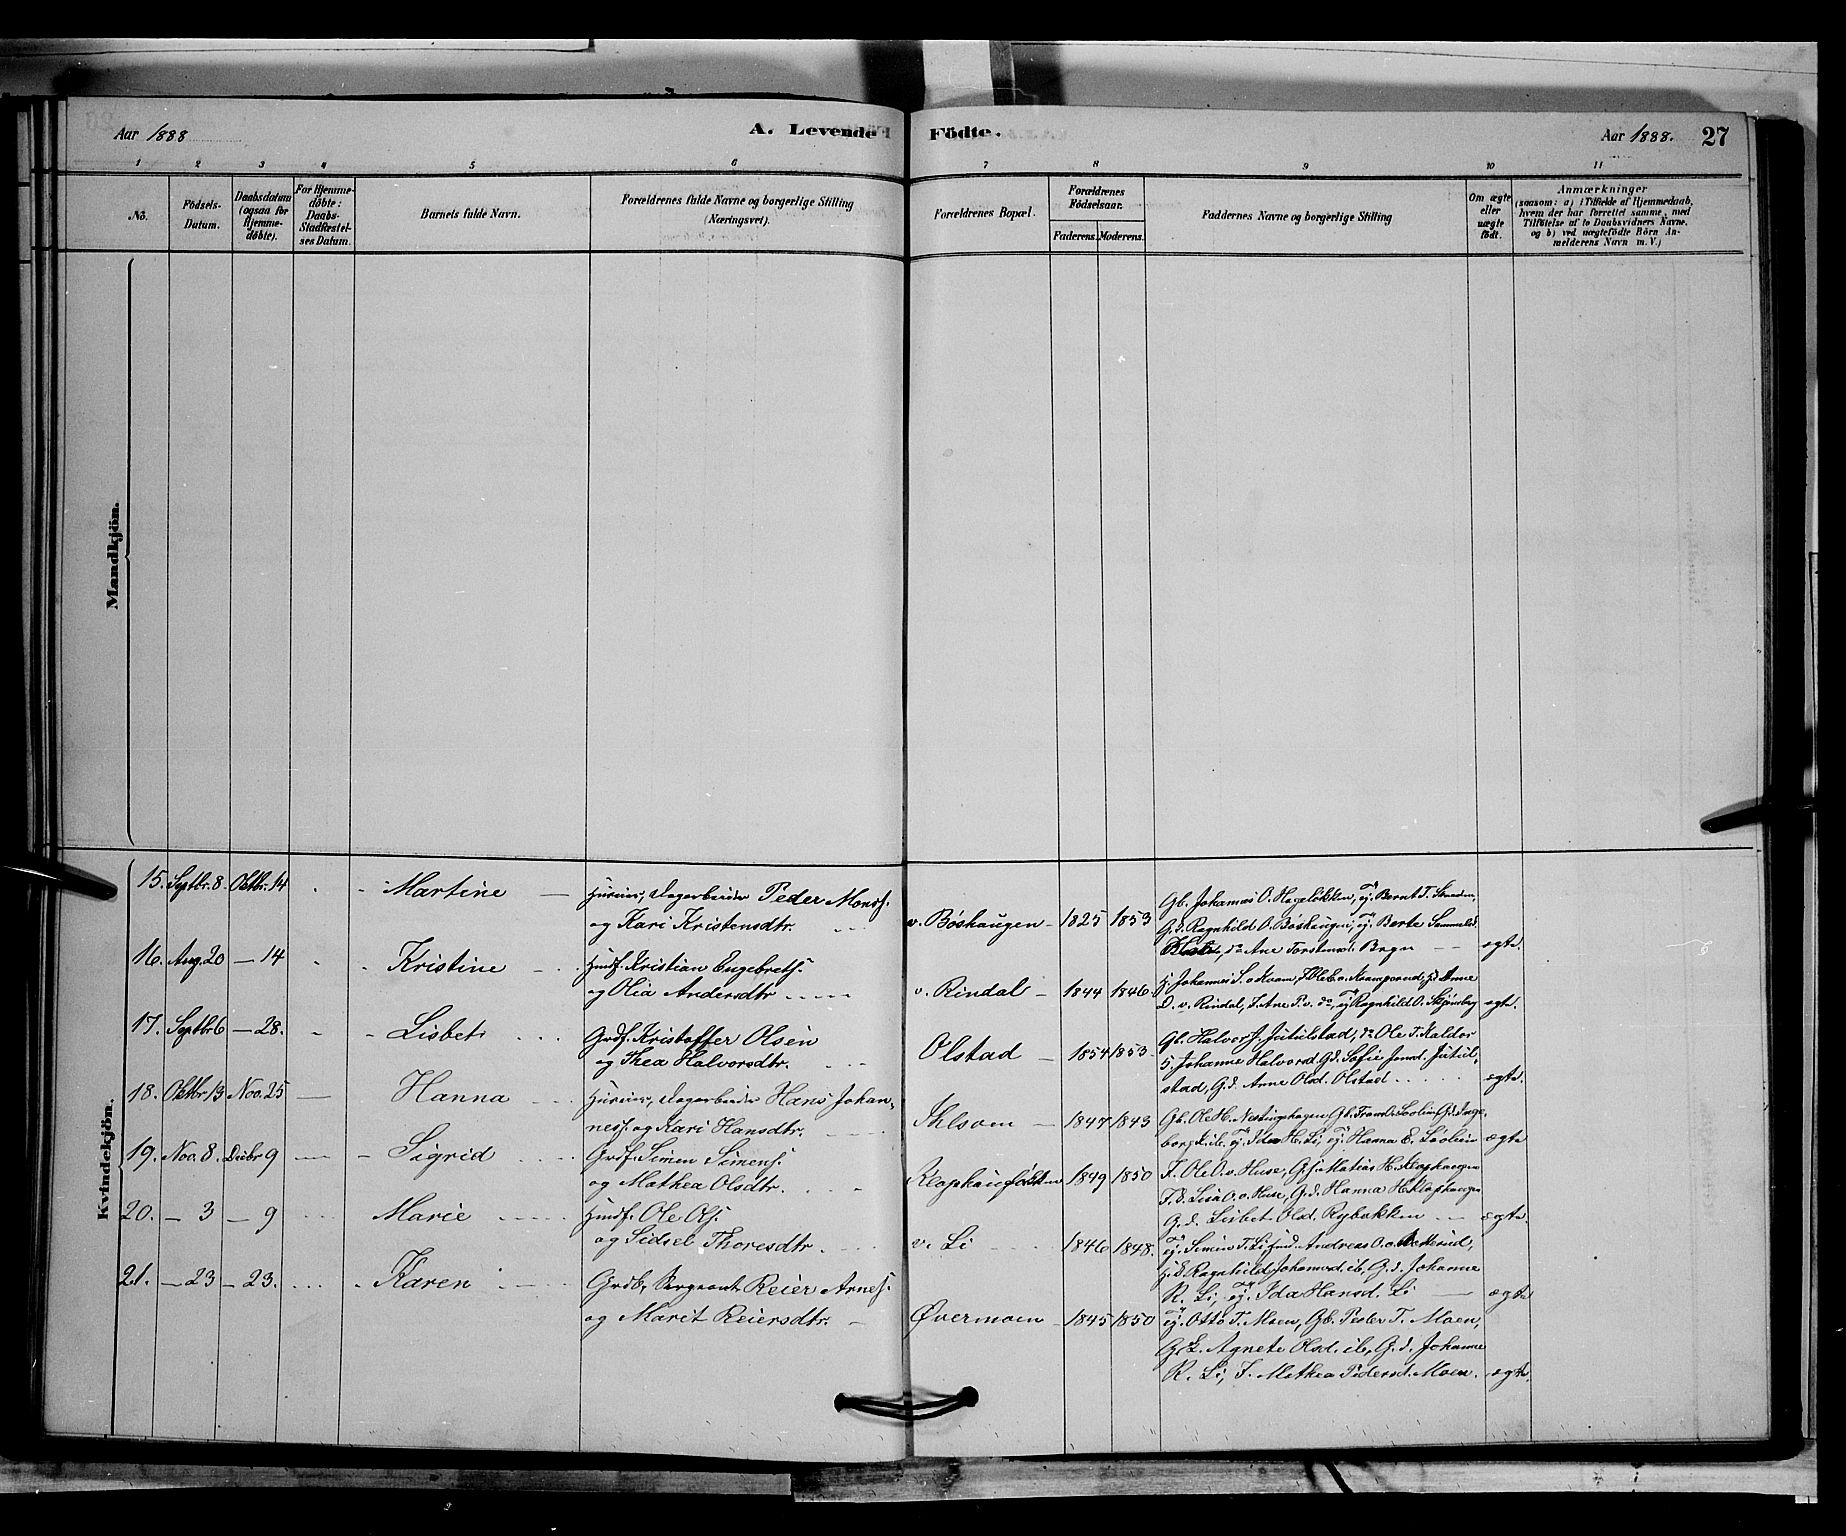 Aar 1888 A. Levende Födte. Aar 1888. 27
1 2 3 4 5 6 7 8 9 10 11
No.
Födsels-Datum.
Daabsdatum (ogsaa for Hjemme-döbte).
For Hjemme-döbte: Daabs-Stadfæstel-ses Datum.
Barnets fulde Navn.
Forældrenes fulde Navne og borgerlige Stilling
(Næringsvei).
Forældrenes Bopæl.
Forældrenes Födselsaar.
Faderens. Moderens.
Faddernes Navne og borgerlige Stilling
Om ægte eller uægte födt.
Anmærkninger
(saasom: a) i Tilfælde af Hjemmedaab,
hvem der har forrettet samme, med
Tilföielse af to Daabsvidners Navne.
og b) ved uægtefödte Börn An-
melderens Navn m. V.)
Mandkjön.
Kvindekjön.
15. Septbr. 8. Oktbr. 14 - - Martine — Husmd, Dagarbeider Peder Monss.
og Kari Kristensdtr.
v. Böshaugen - 1825 1853
Gb. Johannes O. Hageløkken, Bernt T.
G.d. Ragnhild O. Böshaugen, Berte
do Ane Torstensd. Bregn — ægte.
16. Aug. 20 — 14 - - Kristine Husf. Kristian Engebrets.
og Olia Andersdtr
v. Rindal - 1844 1846.
Johannes S. Ole E.
D. v. Rindal, Ane P. v. do, Ragnhild O. ægte.
17. Septbr. 6 — 28. - - Lisbet Grdf. Kristoffer Olsen
og Thea Halvorsdtr.
Olstad - 1854 1853.
Gb. Halvor J. Jutulstad, do Ole T. Kaldor
Johanne Halvorsd. G.d. Sofie Jonsd. Jutul-
stad, G.d. Anne Olsd. Olstad ægte.
18. Oktbr. 13 Nov. 25 — Hanna Husmd, Dagarbeider Hans Johan-
ness. og Kari Hansdtr.
1847 1843
Gb. Ole H. Nestingshagen, Gb. G.d. Inge-
borg ib. Ida H. Li, Hanna E. ægte
19. Nov. 8. Decbr 9 — - Sigrid Grdf. Simen Simens.
og Mathea Olsdtr.
Klophaugløkken 1849 1850
F. Ole O. v. Huse, G.f. Matias H. Klophaugen
Lisa O. v. Huse, G.d. Hanna H. Klophaugen
G.d. Lisbet Olsd. Rybakken — ægte.
20. — 3 — 9 Marie Husf. Ole Ols.
og Sidsel Thoresdtr.
v. Li 1846 1848.
Simen T. Li, Andreas O.
Ragnhild Johannesd. ib, G.d. Johanne
R. Li, Ida Hansd. Li — ægte
21. — 23 — 23. - Karen Grdb, Sergeant Reier Arnes.
og Marit Reiersdtr.
Øvermoen 1845 1850
Otto T. Moen, Gb. Peder T. Moen,
Agnete Olsd. ib, G.d. Johanne
R. Li, F. Mathea Pedersd. Moen. ægte.